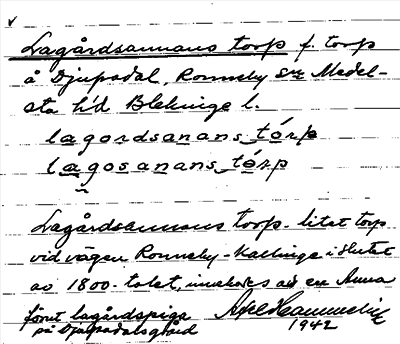 v
Lagårdsannans torp f. torp
å Djupadal, Ronneby Sn Medel-
sta h'd Blekinge l.
lagordsanans tórp
lagosanans tórp
Lagårdsannans torp - litet torp
vid vägen Ronneby - Kallinge i slutet
av 1800-talet, innehades av en Anna
förut lagårdspiga
på Djupadalsgård
1942